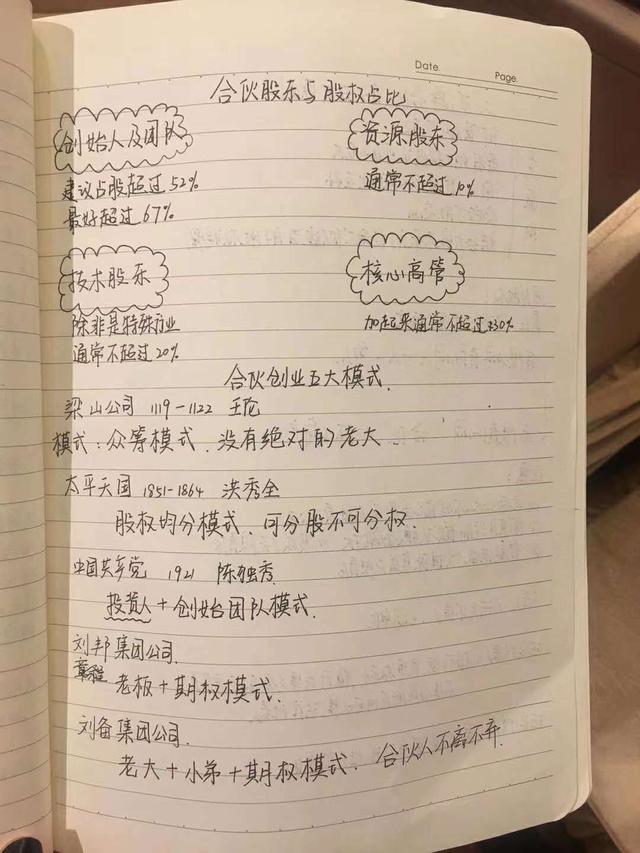 Date.
Page.
合伙股东与股权占比
创始人及团队
建议占股超过52%
最好超过67%
资源股东
通常不超过10%
技术股东
除非是特殊行业
通常不超过20%
核心高管
加起来通常不超过30%
合伙创业五大模式.
梁山公司 1119-1122 王伦
模式:众筹模式.没有绝对的老大.
太平天国 1851-1864 洪秀全
股权均分模式.可分股不可分权.
中国共产党 1921 陈独秀.
投资人+创始团队模式.
刘邦集团公司.
老板+期权模式.
刘备集团公司.
老大+小弟+期权模式. 合伙人不离不弃.